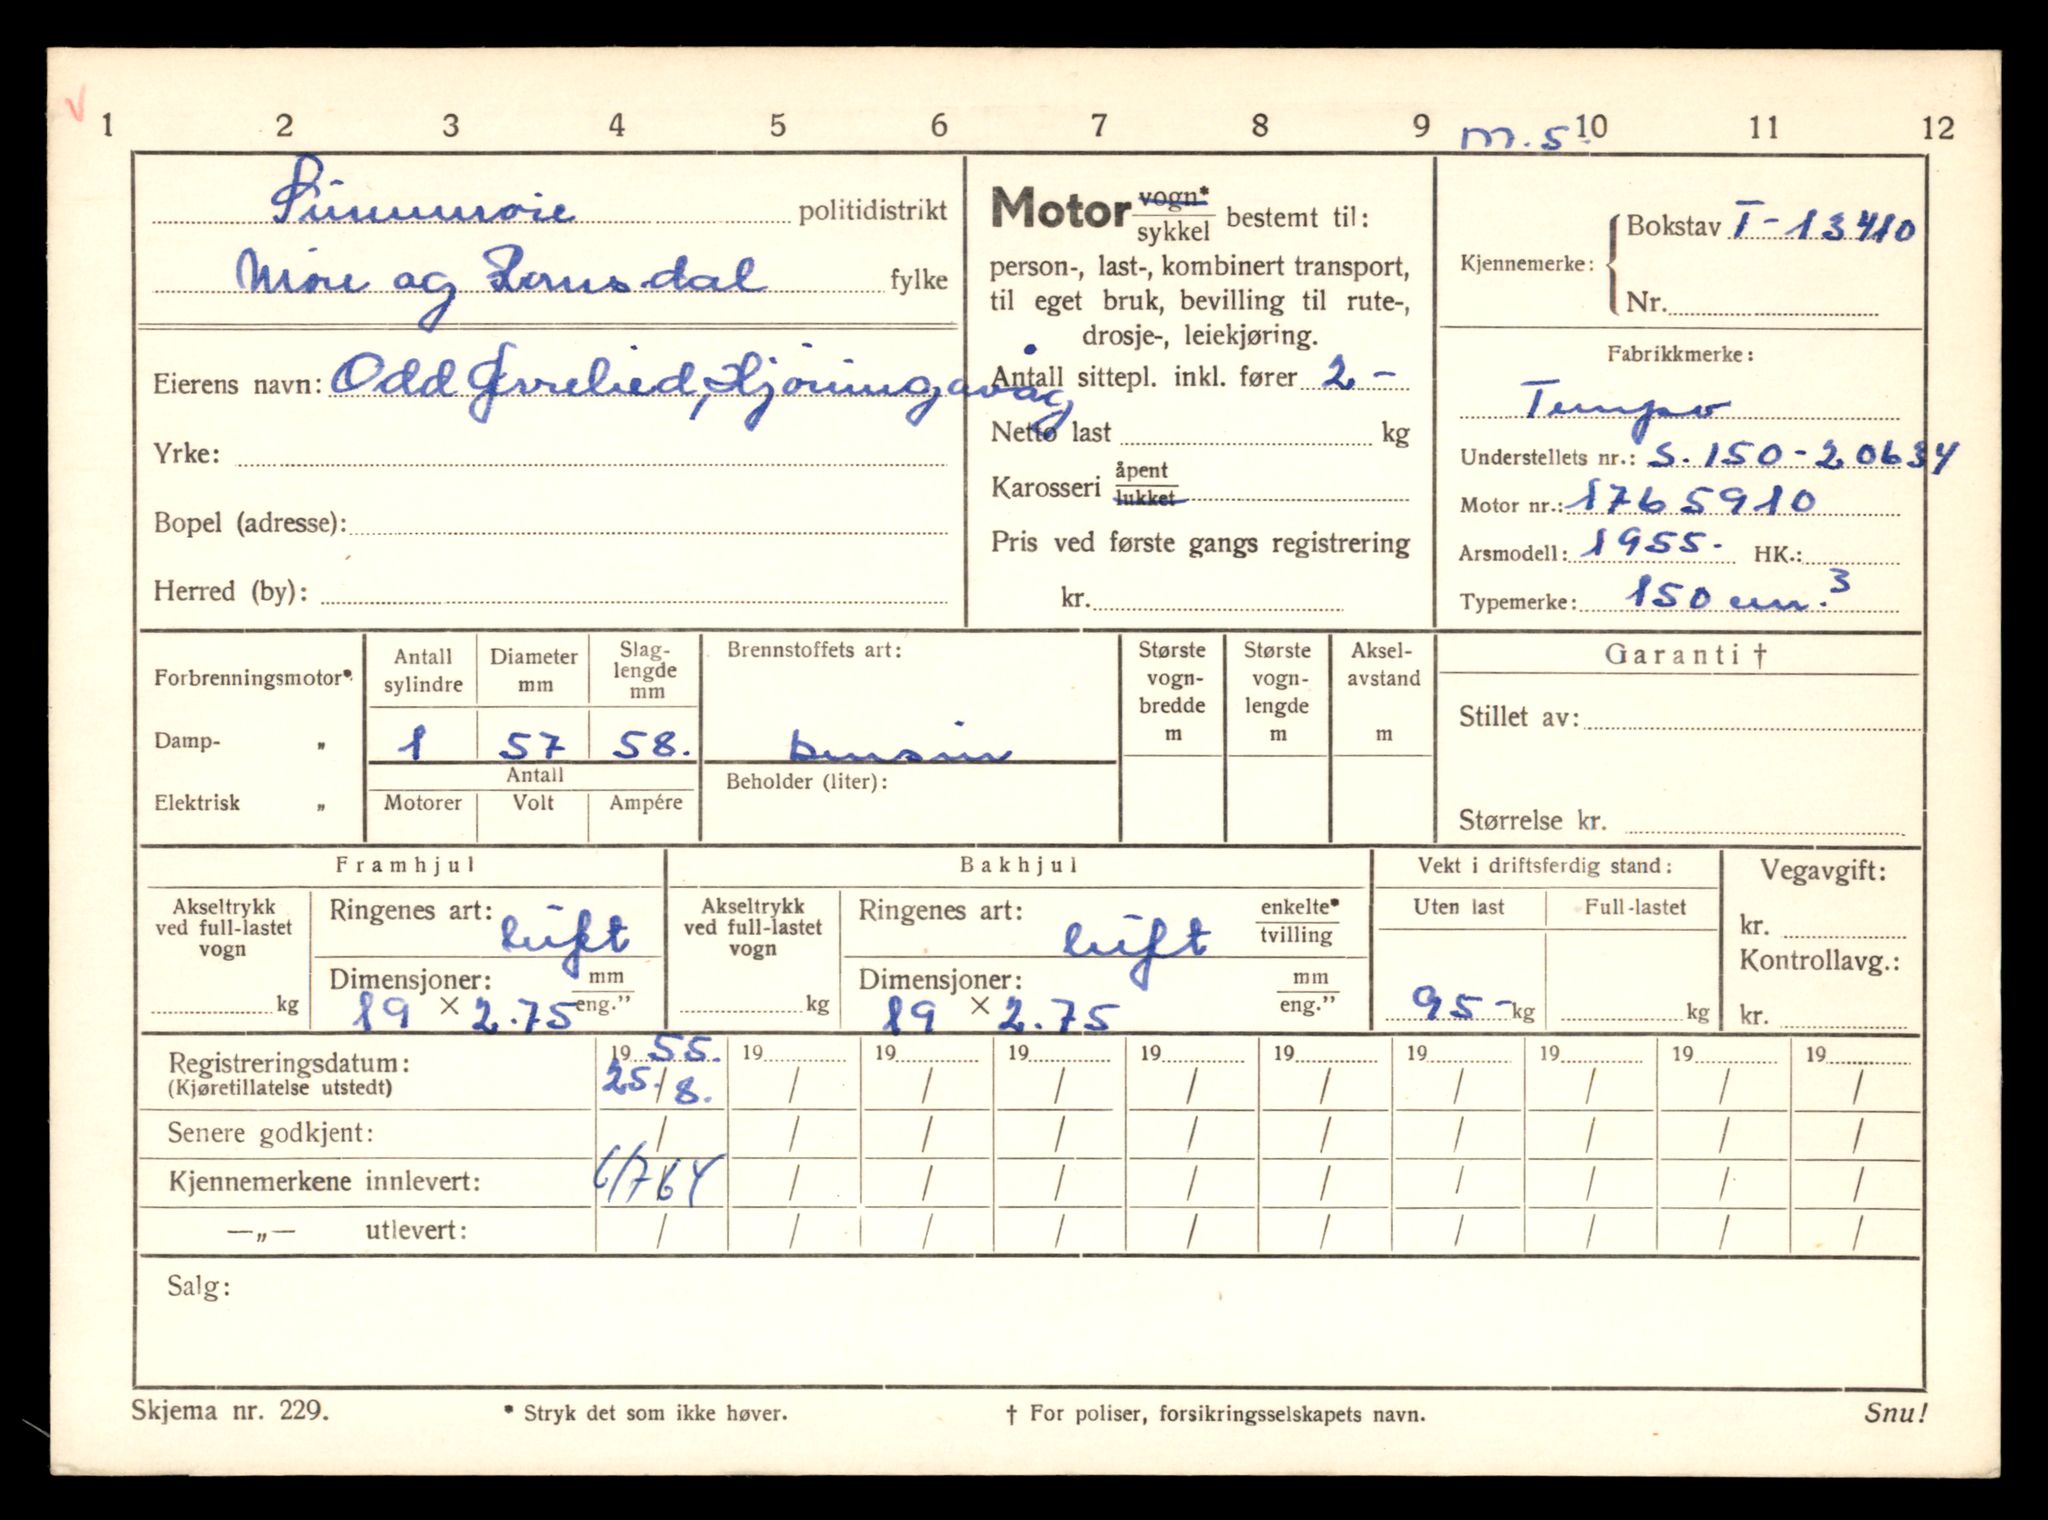 1 2 3 4 5 6 7 8 9 10 11 12
m.s.
Sunnmøre politidistrikt
Møre og Romsdal fylke
Eierens navn: Odd Hjørungavåg
Yrke:
Bopel (adresse):
Herred (by):
Motor vogn* sykkel bestemt til:
person-, last-, kombinert transport,
til eget bruk, bevilling til rute-,
drosje-, leiekjøring.
Antall sittepl. inkl. fører 2 -
Netto last kg
Karosseri åpent lukket
Pris ved første gangs registrering
kr.
Kjennemerke: Bokstav T-13410
Nr.
Fabrikkmerke:
Tempo
Understellets nr.: S.150-20634
Motor nr.: 1765910
Arsmodell: 1955. HK.:
Typemerke: 150 cm.³
Forbrenningsmotor*
Damp- „
Elektrisk „
Antall sylindre
Diameter mm
Slag-lengde mm
1 57 58.
Antall
Motorer Volt Ampére
Brennstoffets art:
bensin
Beholder (liter):
Største vogn-bredde m
Største vogn-lengde m
Aksel-avstand m
Garanti †
Stillet av:
Størrelse kr.
Framhjul
Akseltrykk ved full-lastet vogn
kg
Ringenes art: luft
Dimensjoner: mm eng."
19 × 2.75
Bakhjul
Akseltrykk ved full-lastet vogn
kg
Ringenes art: luft enkelte* tvilling
Dimensjoner: mm eng."
19 × 2.75
Vekt i driftsferdig stand:
Uten last Full-lastet
95- kg kg
Vegavgift:
kr.
Kontrollavg.:
kr.
Registreringsdatum: 19 55. 19 19 19 19 19 19 19 19 19
(Kjøretillatelse utstedt) 25./8. / / / / / / / / /
Senere godkjent: / / / / / / / / / /
Kjennemerkene innlevert: 6/7 64 / / / / / / / / /
—„— utlevert: / / / / / / / / / /
Salg:
Skjema nr. 229. * Stryk det som ikke høver. † For poliser, forsikringsselskapets navn. Snu!